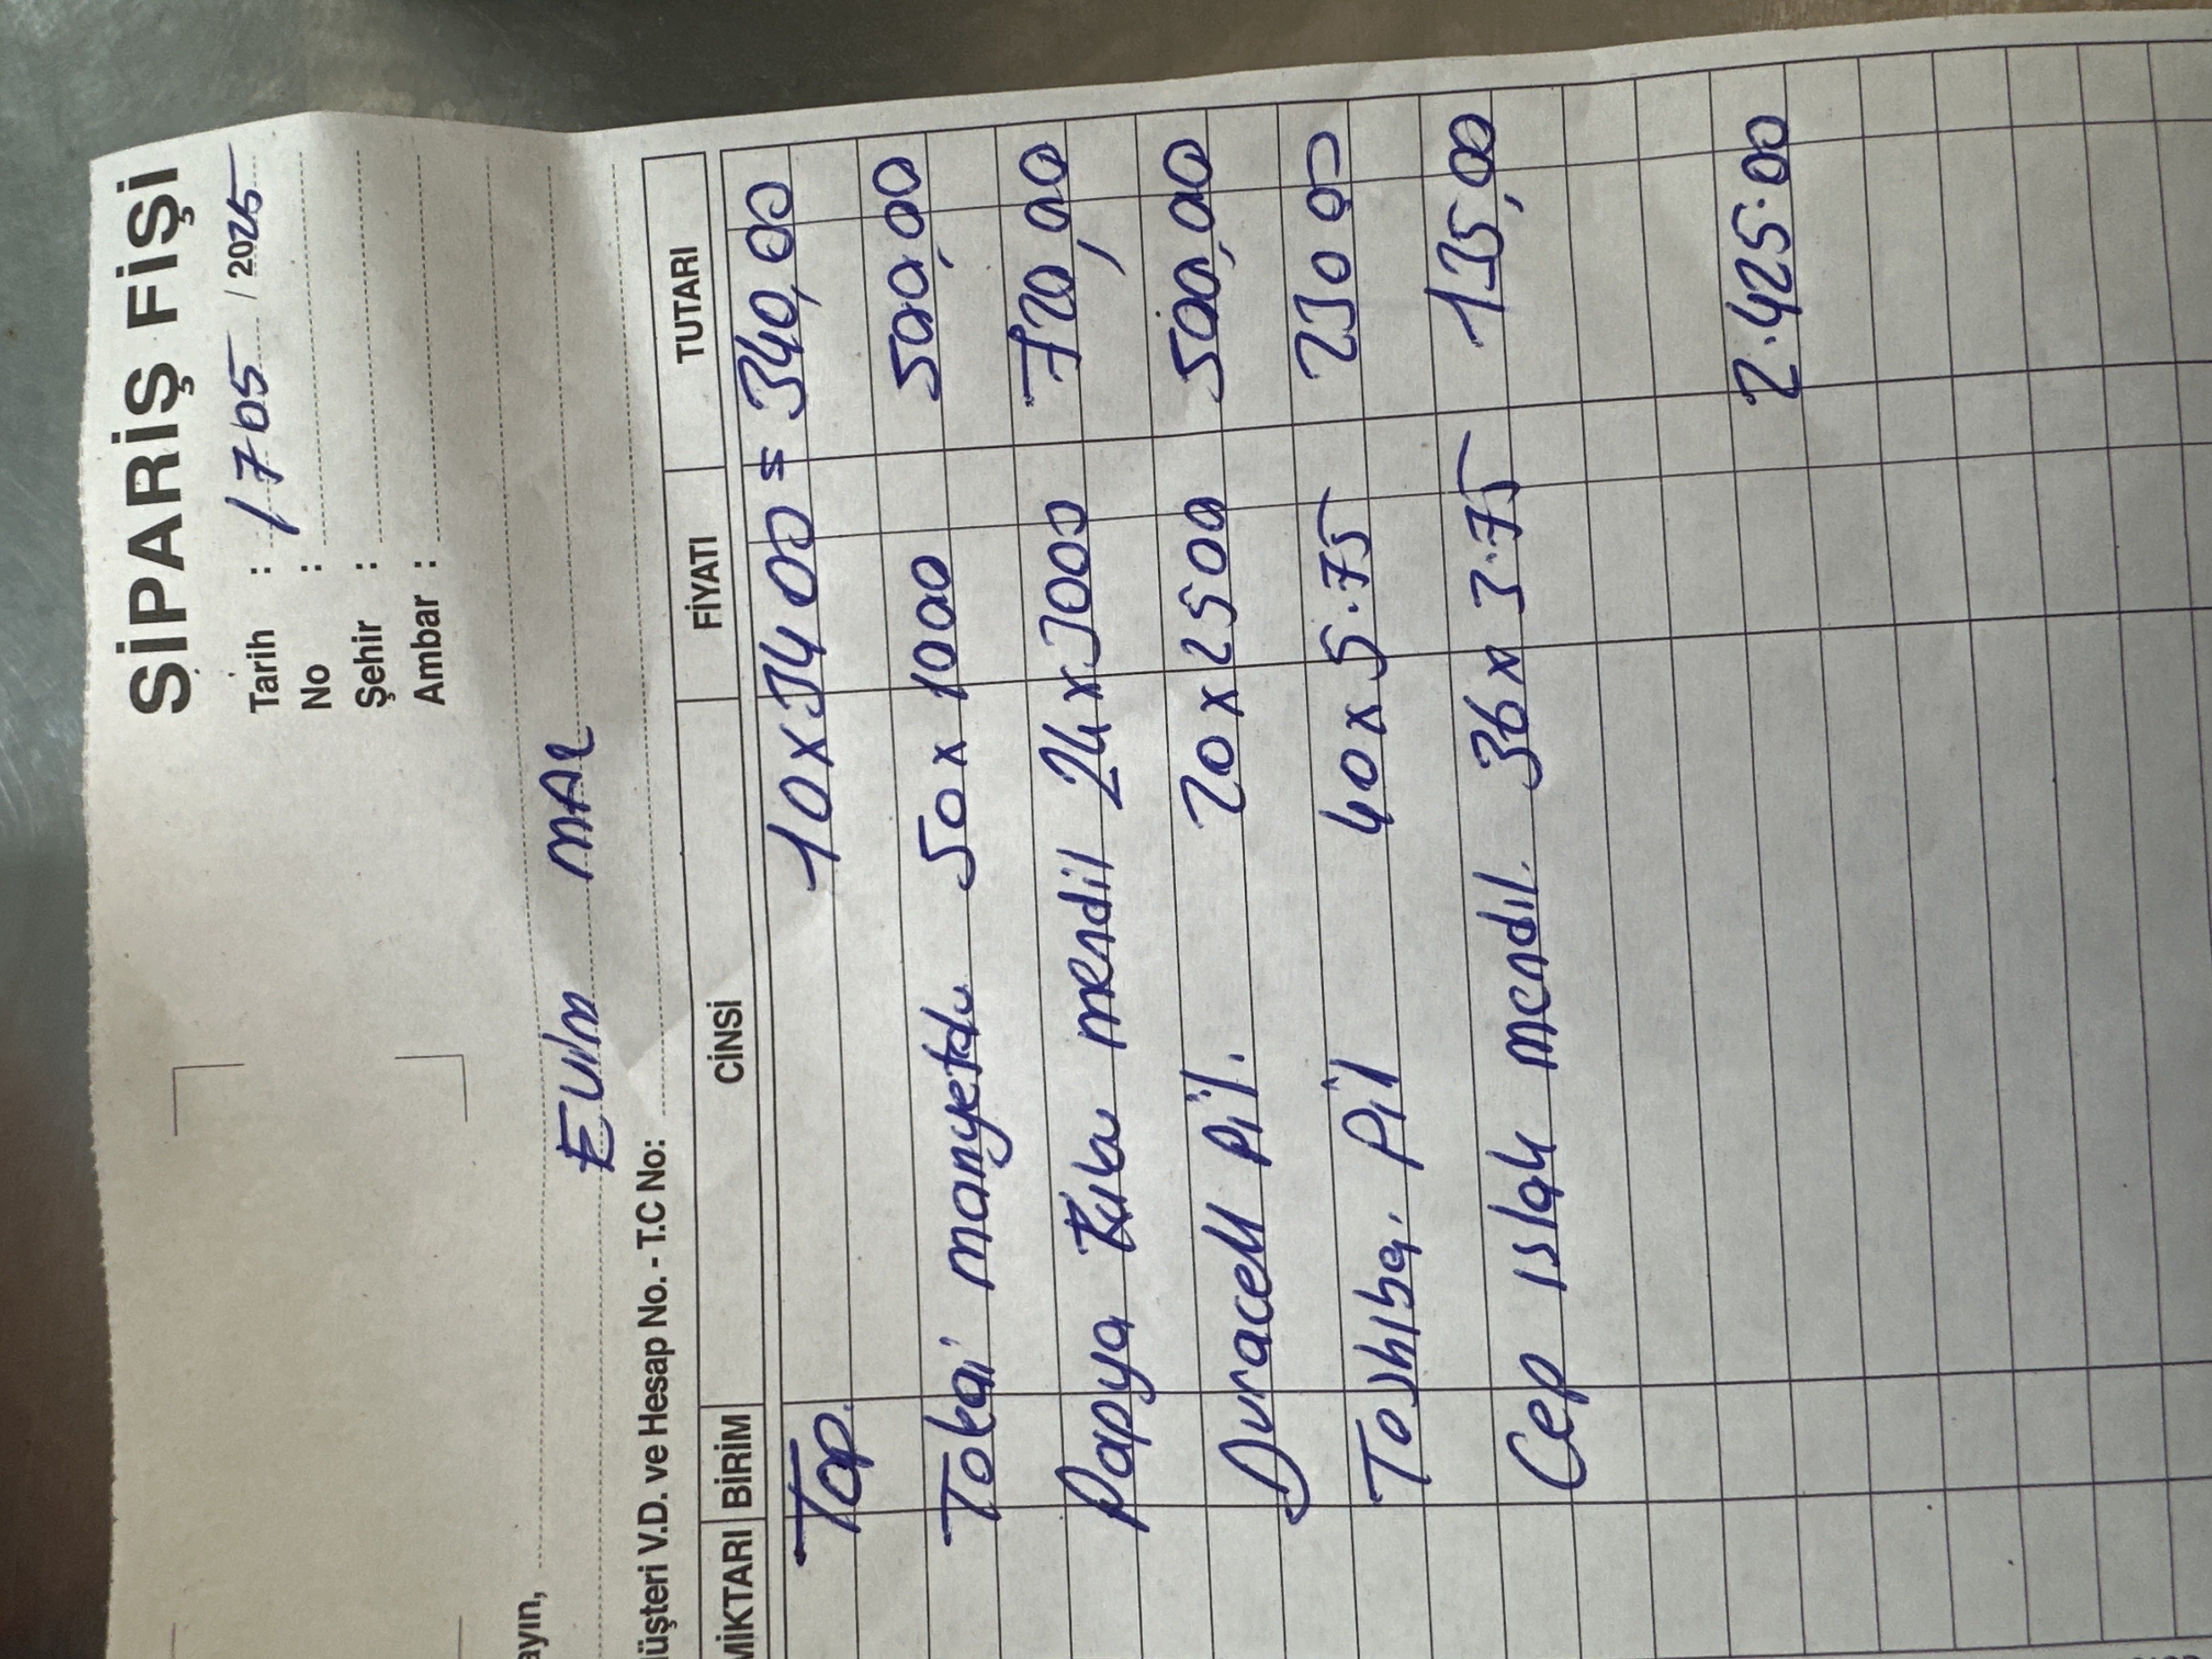 SİPARİŞ FİŞİ
Tarih : 17 05 / 2025
No :
Şehir :
Ambar :
ayın,
MAL
üşteri V.D. ve Hesap No. - T.C No:
MİKTARI BİRİM CİNSİ FİYATI TUTARI
Top. 10x34 00 = 340,00
Tokai manyetolu 50x1000 500,00
Papya Kutu mendil 24x3000 720,00
Duracell pil. 20x2500 500,00
Toshiba. pil 40x5.75 230 00
Cep ıslak mendil. 36x3.75 135,00
2.425.00